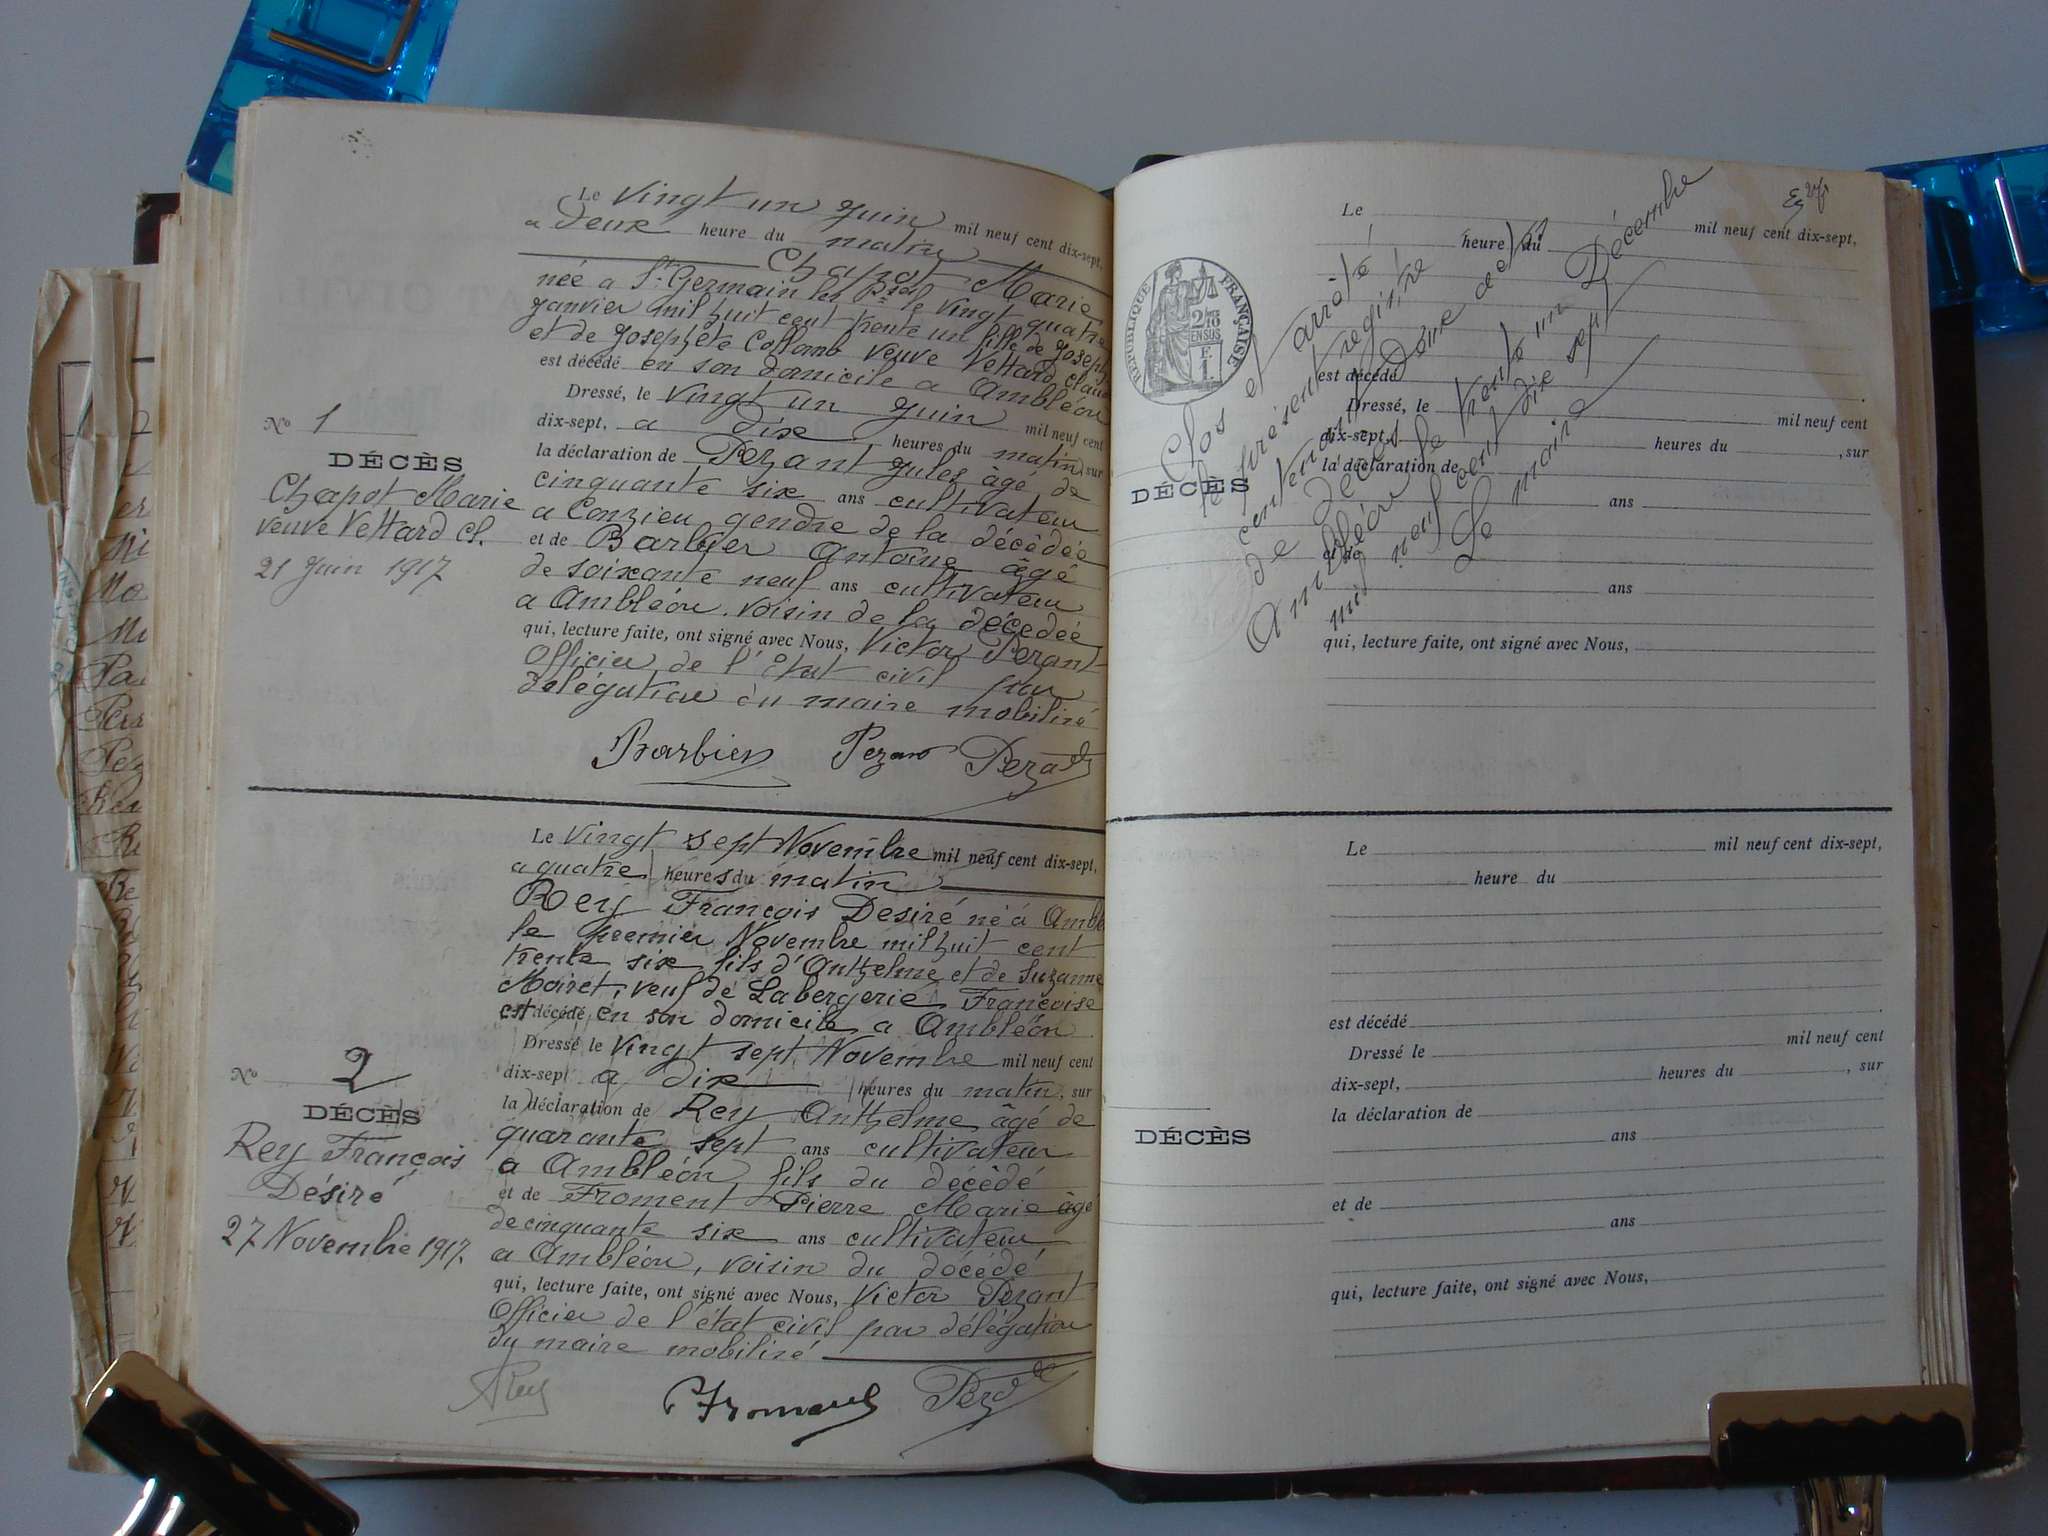 Le vingt un juin mil neuf cent dix-sept,
a deux heure du matin
Chapot Marie
née à St Germain les P. le vingt quatre
janvier mil huit cent trente un fille de Joseph
et de Josephte Collomb veuve Vettard Claude
est décédé en son domicile a Ambléon
Dressé, le vingt un juin mil neuf cent
dix-sept, a dix heures du matin, sur
la déclaration de Pezant Jules âgé de
cinquante six ans cultivateur
a Conzieu gendre de la décédée
et de Barbier Antoine âgé
de soixante neuf ans cultivateur
a Ambléon, voisin de la décédée
qui, lecture faite, ont signé avec Nous, Victor Pezant
Officier de l'état civil par
délégation du maire mobilisé
Barbier Pezant Pezant
No 1
DÉCÈS
Chapot Marie
veuve Vettard Cl.
21 Juin 1917
Le vingt sept Novembre mil neuf cent dix-sept,
a quatre heures du matin
Rey François Desiré né à Amblé
le premier Novembre mil huit cent
trente six fils d'Anthelme et de Suzanne
Moiret, veuf de Labergerie Françoise
est décédé en son domicile a Ambléon
Dressé le vingt sept Novembre mil neuf cent
dix-sept a dix heures du matin, sur
la déclaration de Rey Anthelme âgé de
quarante sept ans cultivateur
a Ambléon fils du décédé
et de Froment Pierre Marie âgé
de cinquante six ans cultivateur
a Ambléon, voisin du décédé
qui, lecture faite, ont signé avec Nous, Victor Pezant
Officier de l'état civil par délégation
du maire mobilisé
ARey Froment
No 2
DÉCÈS
Rey François
Désiré
27 Novembre 1917
Le mil neuf cent dix-sept,
heure du
est décédé
Dressé, le mil neuf cent
dix-sept, heures du , sur
la déclaration de
ans
et de
ans
qui, lecture faite, ont signé avec Nous,
RÉPUBLIQUE FRANÇAISE
2/10
EN SUS
F.
1.
DÉCÈS
Clos et arrêté
le présent registre
contenant deux actes
de décès
Ambléon le trente un Décembre
mil neuf cent dix sept
Le maire
Le mil neuf cent dix-sept,
heure du
est décédé
Dressé le mil neuf cent
dix-sept, heures du , sur
la déclaration de
ans
et de
ans
qui, lecture faite, ont signé avec Nous,
DÉCÈS